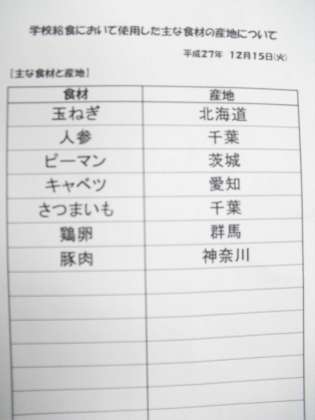 学校給食において使用した主な食材の産地について
平成27年 12月15日(火)
[主な食材と産地]
食材 産地
玉ねぎ 北海道
人参 千葉
ピーマン 茨城
キャベツ 愛知
さつまいも 千葉
鶏卵 群馬
豚肉 神奈川